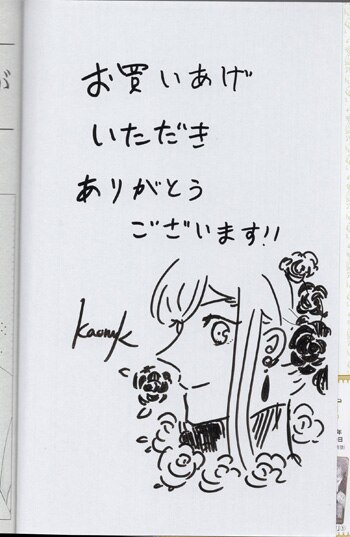 お買いあげ
いただき
ありがとう
ございます!!